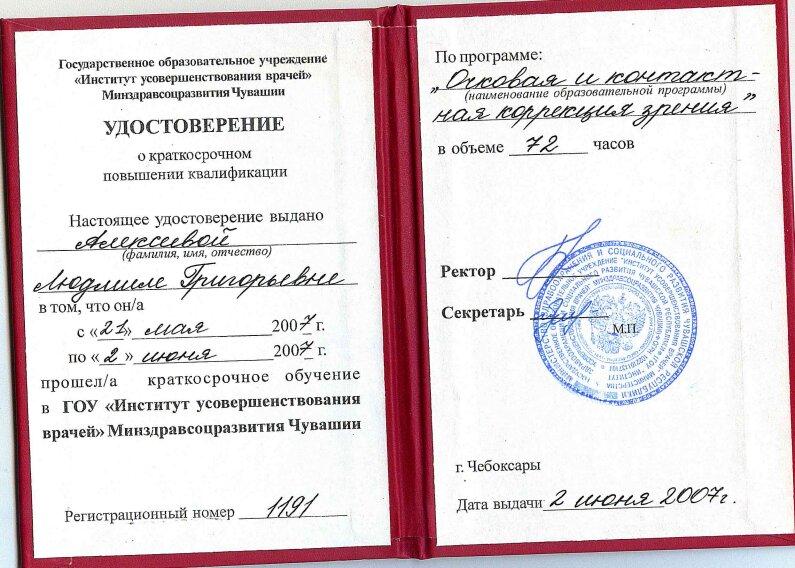 Государственное образовательное учреждение
«Институт усовершенствования врачей»
Минздравсоцразвития Чувашии
УДОСТОВЕРЕНИЕ
о краткосрочном
повышении квалификации
Настоящее удостоверение выдано
Алексеевой
(фамилия, имя, отчество)
Людмиле Григорьевне
в том, что он/а
с «21» мая 2007 г.
по «2» июня 2007 г.
прошел/а краткосрочное обучение
в ГОУ «Институт усовершенствования
врачей» Минздравсоцразвития Чувашии
Регистрационный номер 1191
По программе:
„Очковая и контакт-
(наименование образовательной программы)
ная коррекция зрения”
в объеме 72 часов
Ректор
Секретарь
М.П.
г. Чебоксары
Дата выдачи 2 июня 2007г.